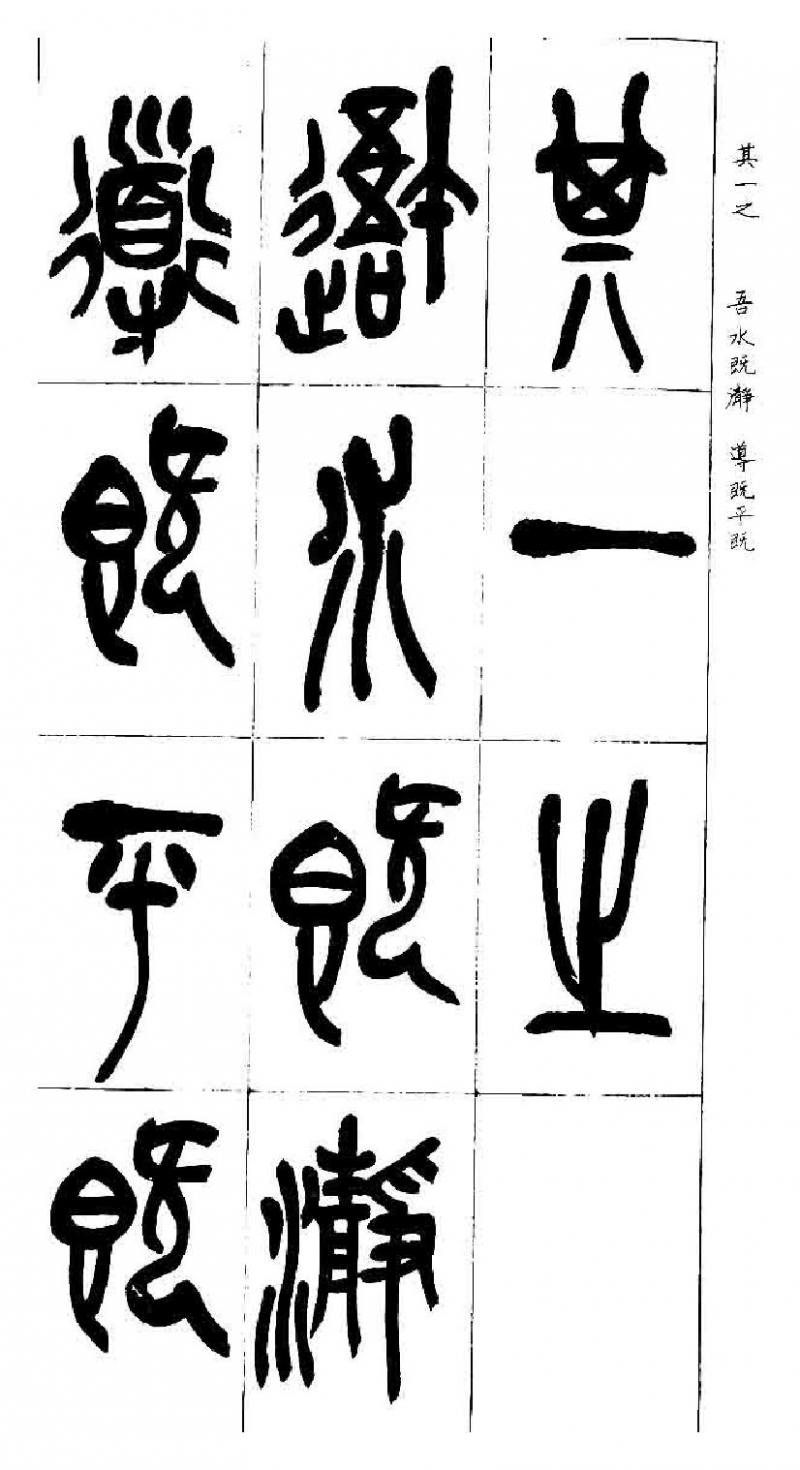 其一之 吾水既瀞 導既平既
其一之
䢩水既瀞
導既平既